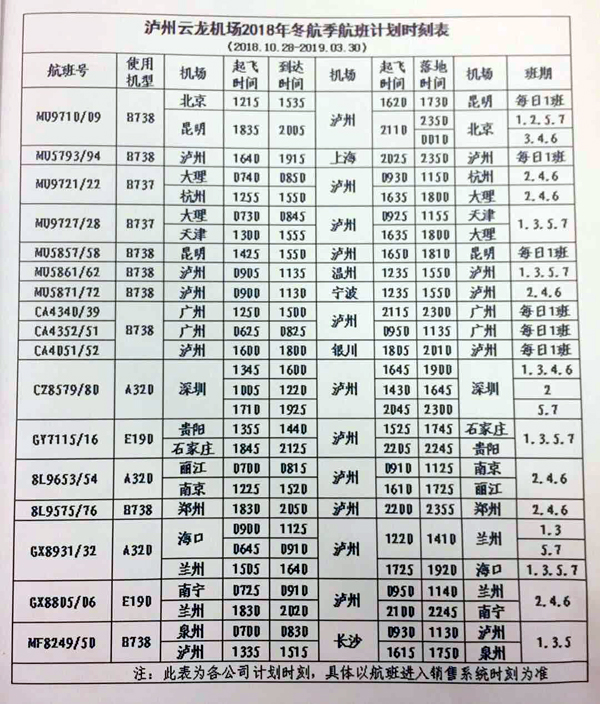 泸州云龙机场2018年冬航季航班计划时刻表
(2018.10.28-2019.03.30)
航班号 使用机型 机场 起飞时间 到达时间 机场 起飞时间 落地时间 机场 班期
MU9710/09 B738 北京 1215 1535 泸州 1620 1730 昆明 每日1班
昆明 1835 2005 2110 2350 北京 1.2.5.7
0010 3.4.6
MU5793/94 B738 泸州 1640 1915 上海 2025 2350 泸州 每日1班
MU9721/22 B737 大理 0740 0850 泸州 0930 1150 杭州 2.4.6
杭州 1255 1550 1635 1800 大理 2.4.6
MU9727/28 B737 大理 0730 0845 泸州 0925 1155 天津 1.3.5.7
天津 1300 1555 1635 1800 大理
MU5857/58 B738 昆明 1425 1550 泸州 1650 1810 昆明 每日1班
MU5861/62 B738 泸州 0905 1135 温州 1235 1550 泸州 1.3.5.7
MU5871/72 B738 泸州 0900 1130 宁波 1235 1550 泸州 2.4.6
CA4340/39 B738 广州 1250 1500 泸州 2115 2300 广州 每日1班
CA4352/51 广州 0625 0825 0950 1135 广州 每日1班
CA4051/52 泸州 1600 1800 银川 1805 2010 泸州 每日1班
CZ8579/80 A320 深圳 1345 1600 泸州 1645 1900 深圳 1.3.4.6
1005 1220 1430 1645 2
1710 1925 2045 2300 5.7
GY7115/16 E190 贵阳 1355 1440 泸州 1525 1745 石家庄 1.3.5.7
石家庄 1845 2125 2205 2245 贵阳
8L9653/54 A320 丽江 0700 0815 泸州 0910 1125 南京 2.4.6
南京 1225 1520 1610 1725 丽江
8L9575/76 B738 郑州 1830 2050 泸州 2200 2355 郑州 2.4.6
GX8931/32 A320 海口 0900 1125 泸州 1220 1410 兰州 1.3
0645 0910 5.7
兰州 1505 1640 1725 1920 海口 1.3.5.7
GX8805/06 E190 南宁 0725 0910 泸州 0950 1140 兰州 2.4.6
兰州 1830 2020 2100 2245 南宁
MF8249/50 B738 泉州 0700 0830 长沙 0930 1130 泸州 1.3.5
泸州 1335 1515 1615 1750 泉州
注：此表为各公司计划时刻，具体以航班进入销售系统时刻为准